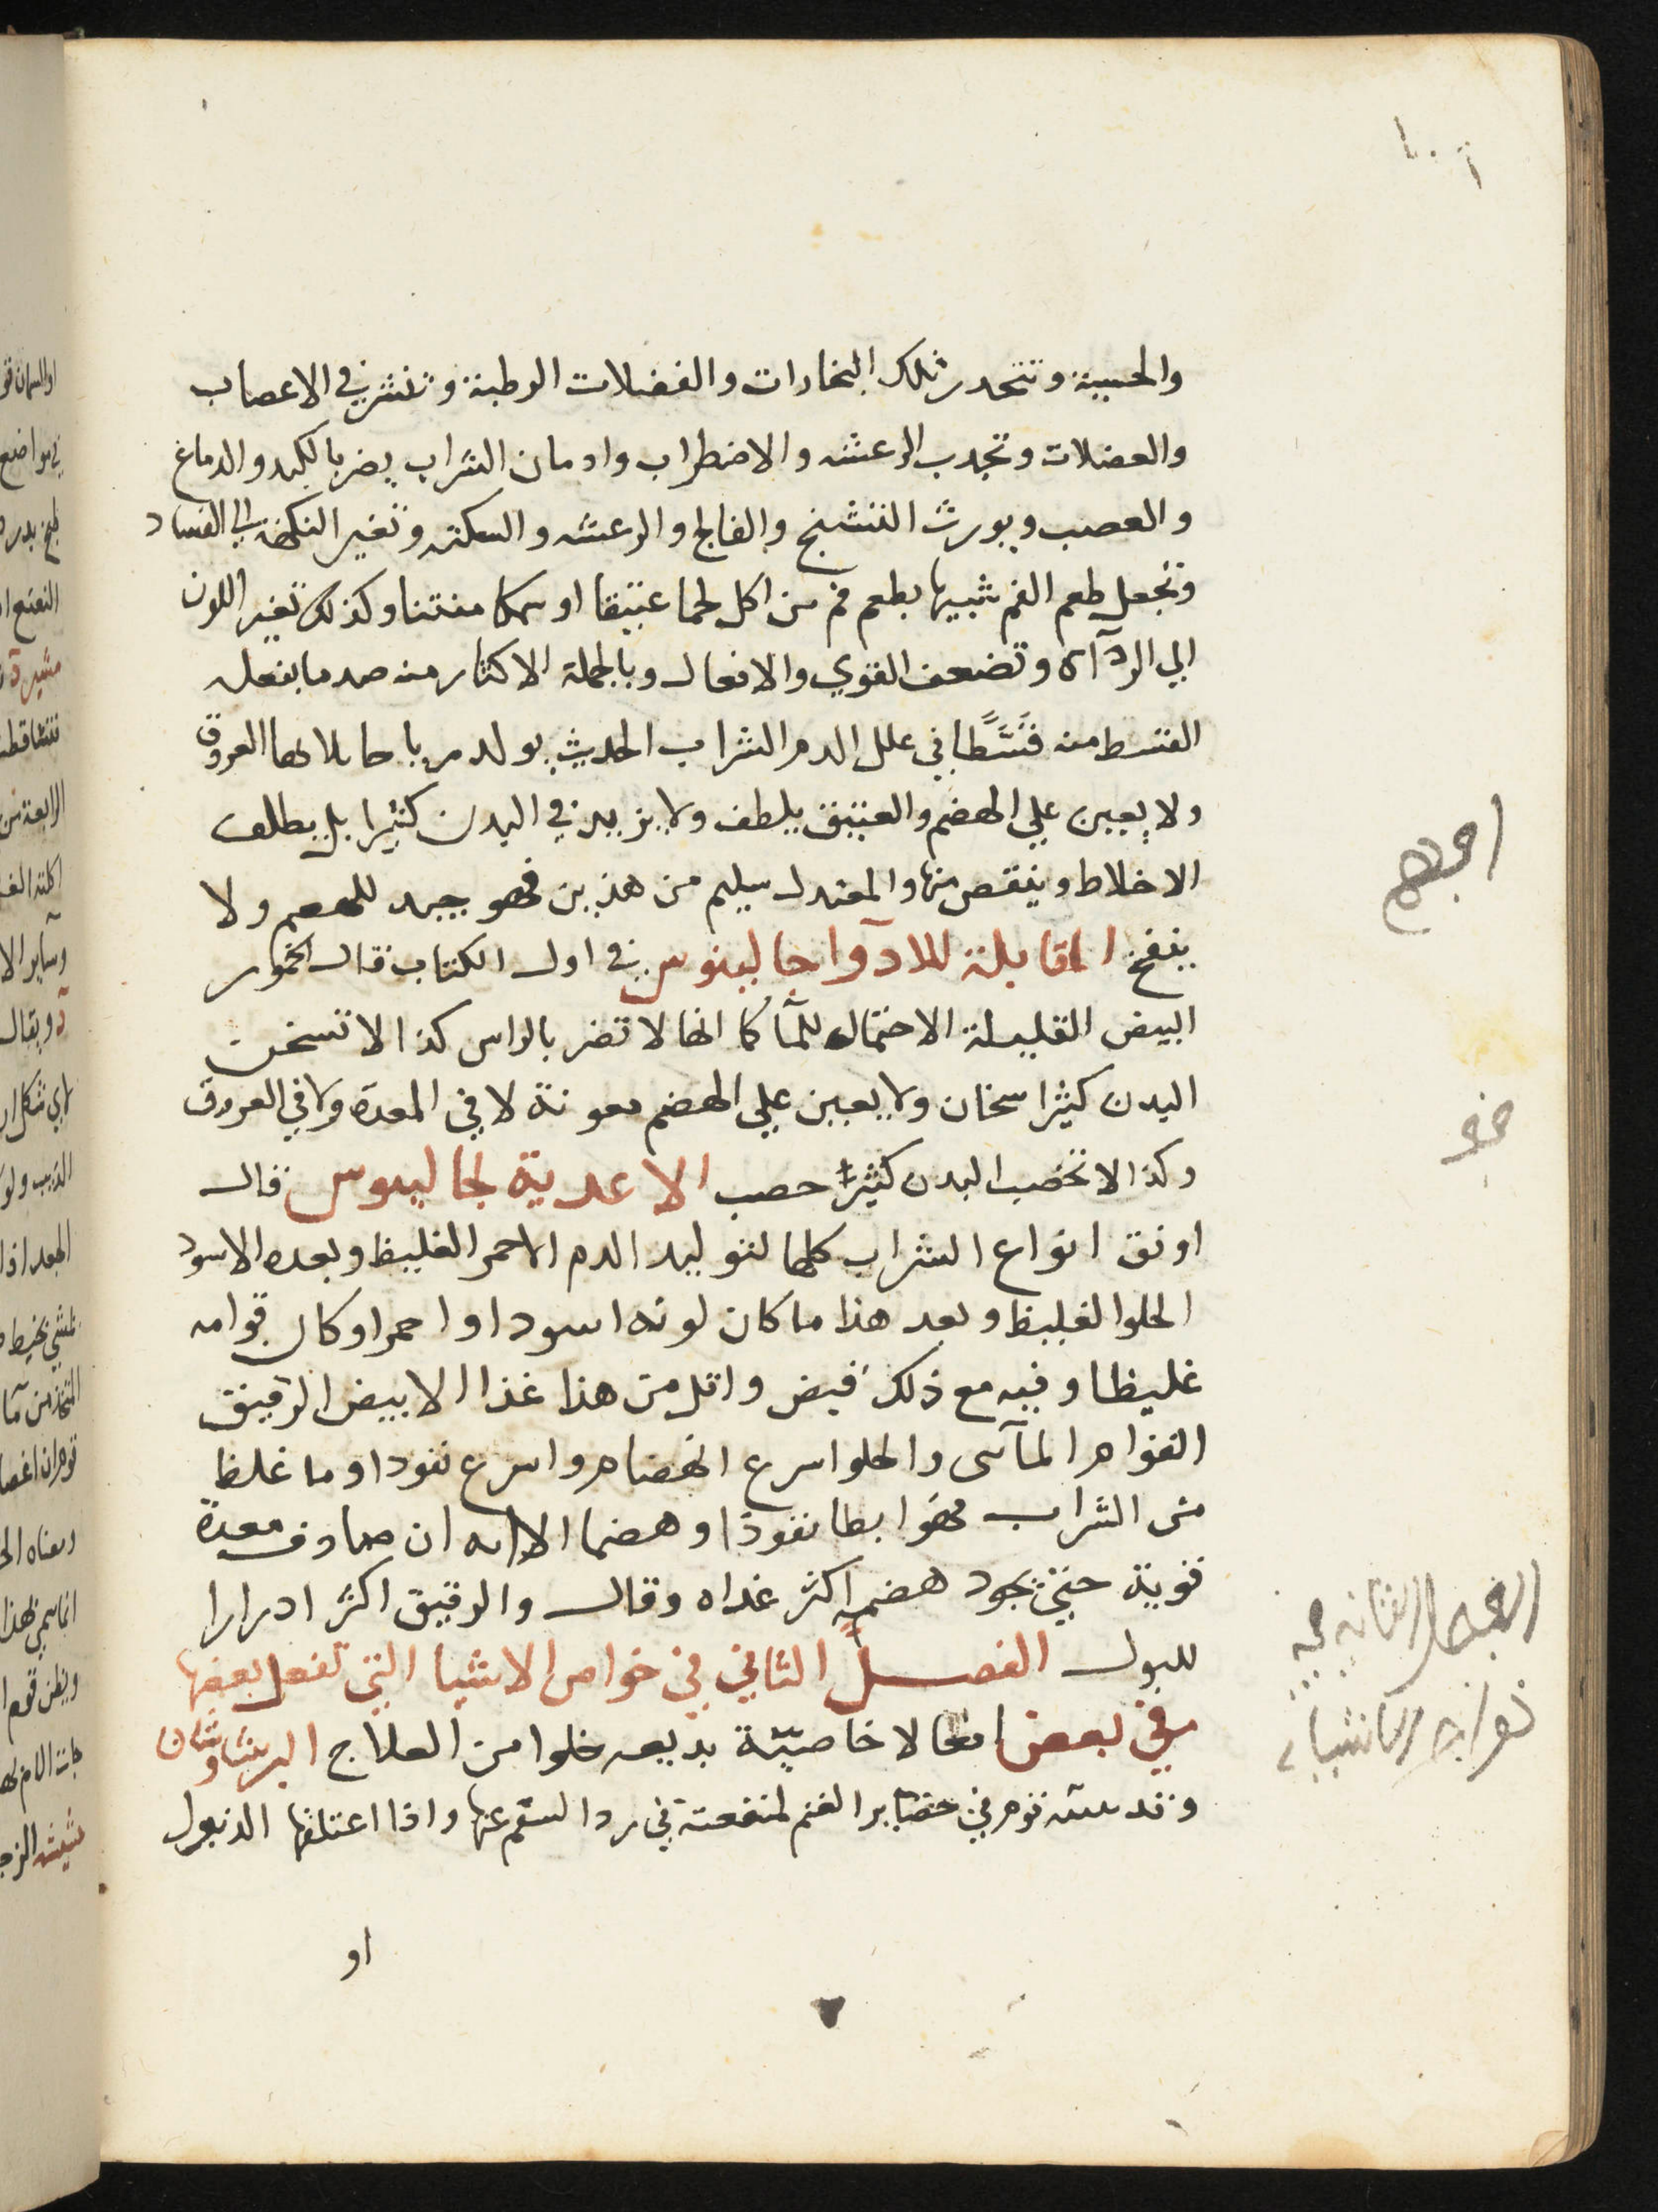 والحسية وتنحدر تلك البخارات والفضلات الرطبة وتنشر في الاعصاب
والعضلات وتجدب الرعشه والاضطراب وادمان الشراب يضر بالكبد والدماغ
والعصب ويورث التشنج والفالج والرعشه والسكته وتغير النكهة الي الفساد
وتجعل طعم الفم شبيها بطعم فم من اكل لحما عتيقا او سمكا منتنا وكذلك تغير اللون
الي الردآة وتضعف القوي والافعال وبالجملة الاكثار منه ضد ما يفعله
القسط منه قسطا في علل الدم الشراب الحديث يولد رياحا يملا بها العروق
ولا يعين علي الهضم والعتيق يلطف ولا يزيد في البدن كثيرا بل يطلف
الاخلاط وينقص منها والمعتدل سليم من هذين فهو جيد للهضم ولا
ينفخ المقابلة للادوآ جالينوس في اول الكتاب قال الخمور
البيض القليلة الاحتمال للمآ كما انها لا تضر بالراس كذا لا تسخن
البدن كثيرا سخان ولا يعين علي الهضم معونة لا في المعدة ولا في العروق
وكذا لا تخصب البدن كثيرا خصب الاغدية لجالينوس قال
اوفق انواع الشراب كلها لتوليد الدم الاحمر الغليظ وبعده الاسود
الحلو الغليظ وبعد هذا ما كان لونه اسود او احمر وكان قوامه
غليظا وفيه مع ذلك قبض واقل من هذا غذا الابيض الرقيق
القوام المآئي والحلو اسرع انهضام واسرع نفودا وما غلظ
من الشراب فهو ابطا نفوذا وهضما الا انه ان صادف معدة
قوية حتي يجود هضمه اكثر غداه وقال والرقيق اكثر ادرارا
للبول الفصل الثاني في خواص الاشيا التي تفعل بعضها
في بعض افعالا خاصيّة بديعه خلوا من العلاج البرشاوشان
وقد قوم في حضاير الغنم لمنفعته في رد السقم عنها واذا اعتلفها الديوك
او
الفصل الثاني في
خواص الاشياء